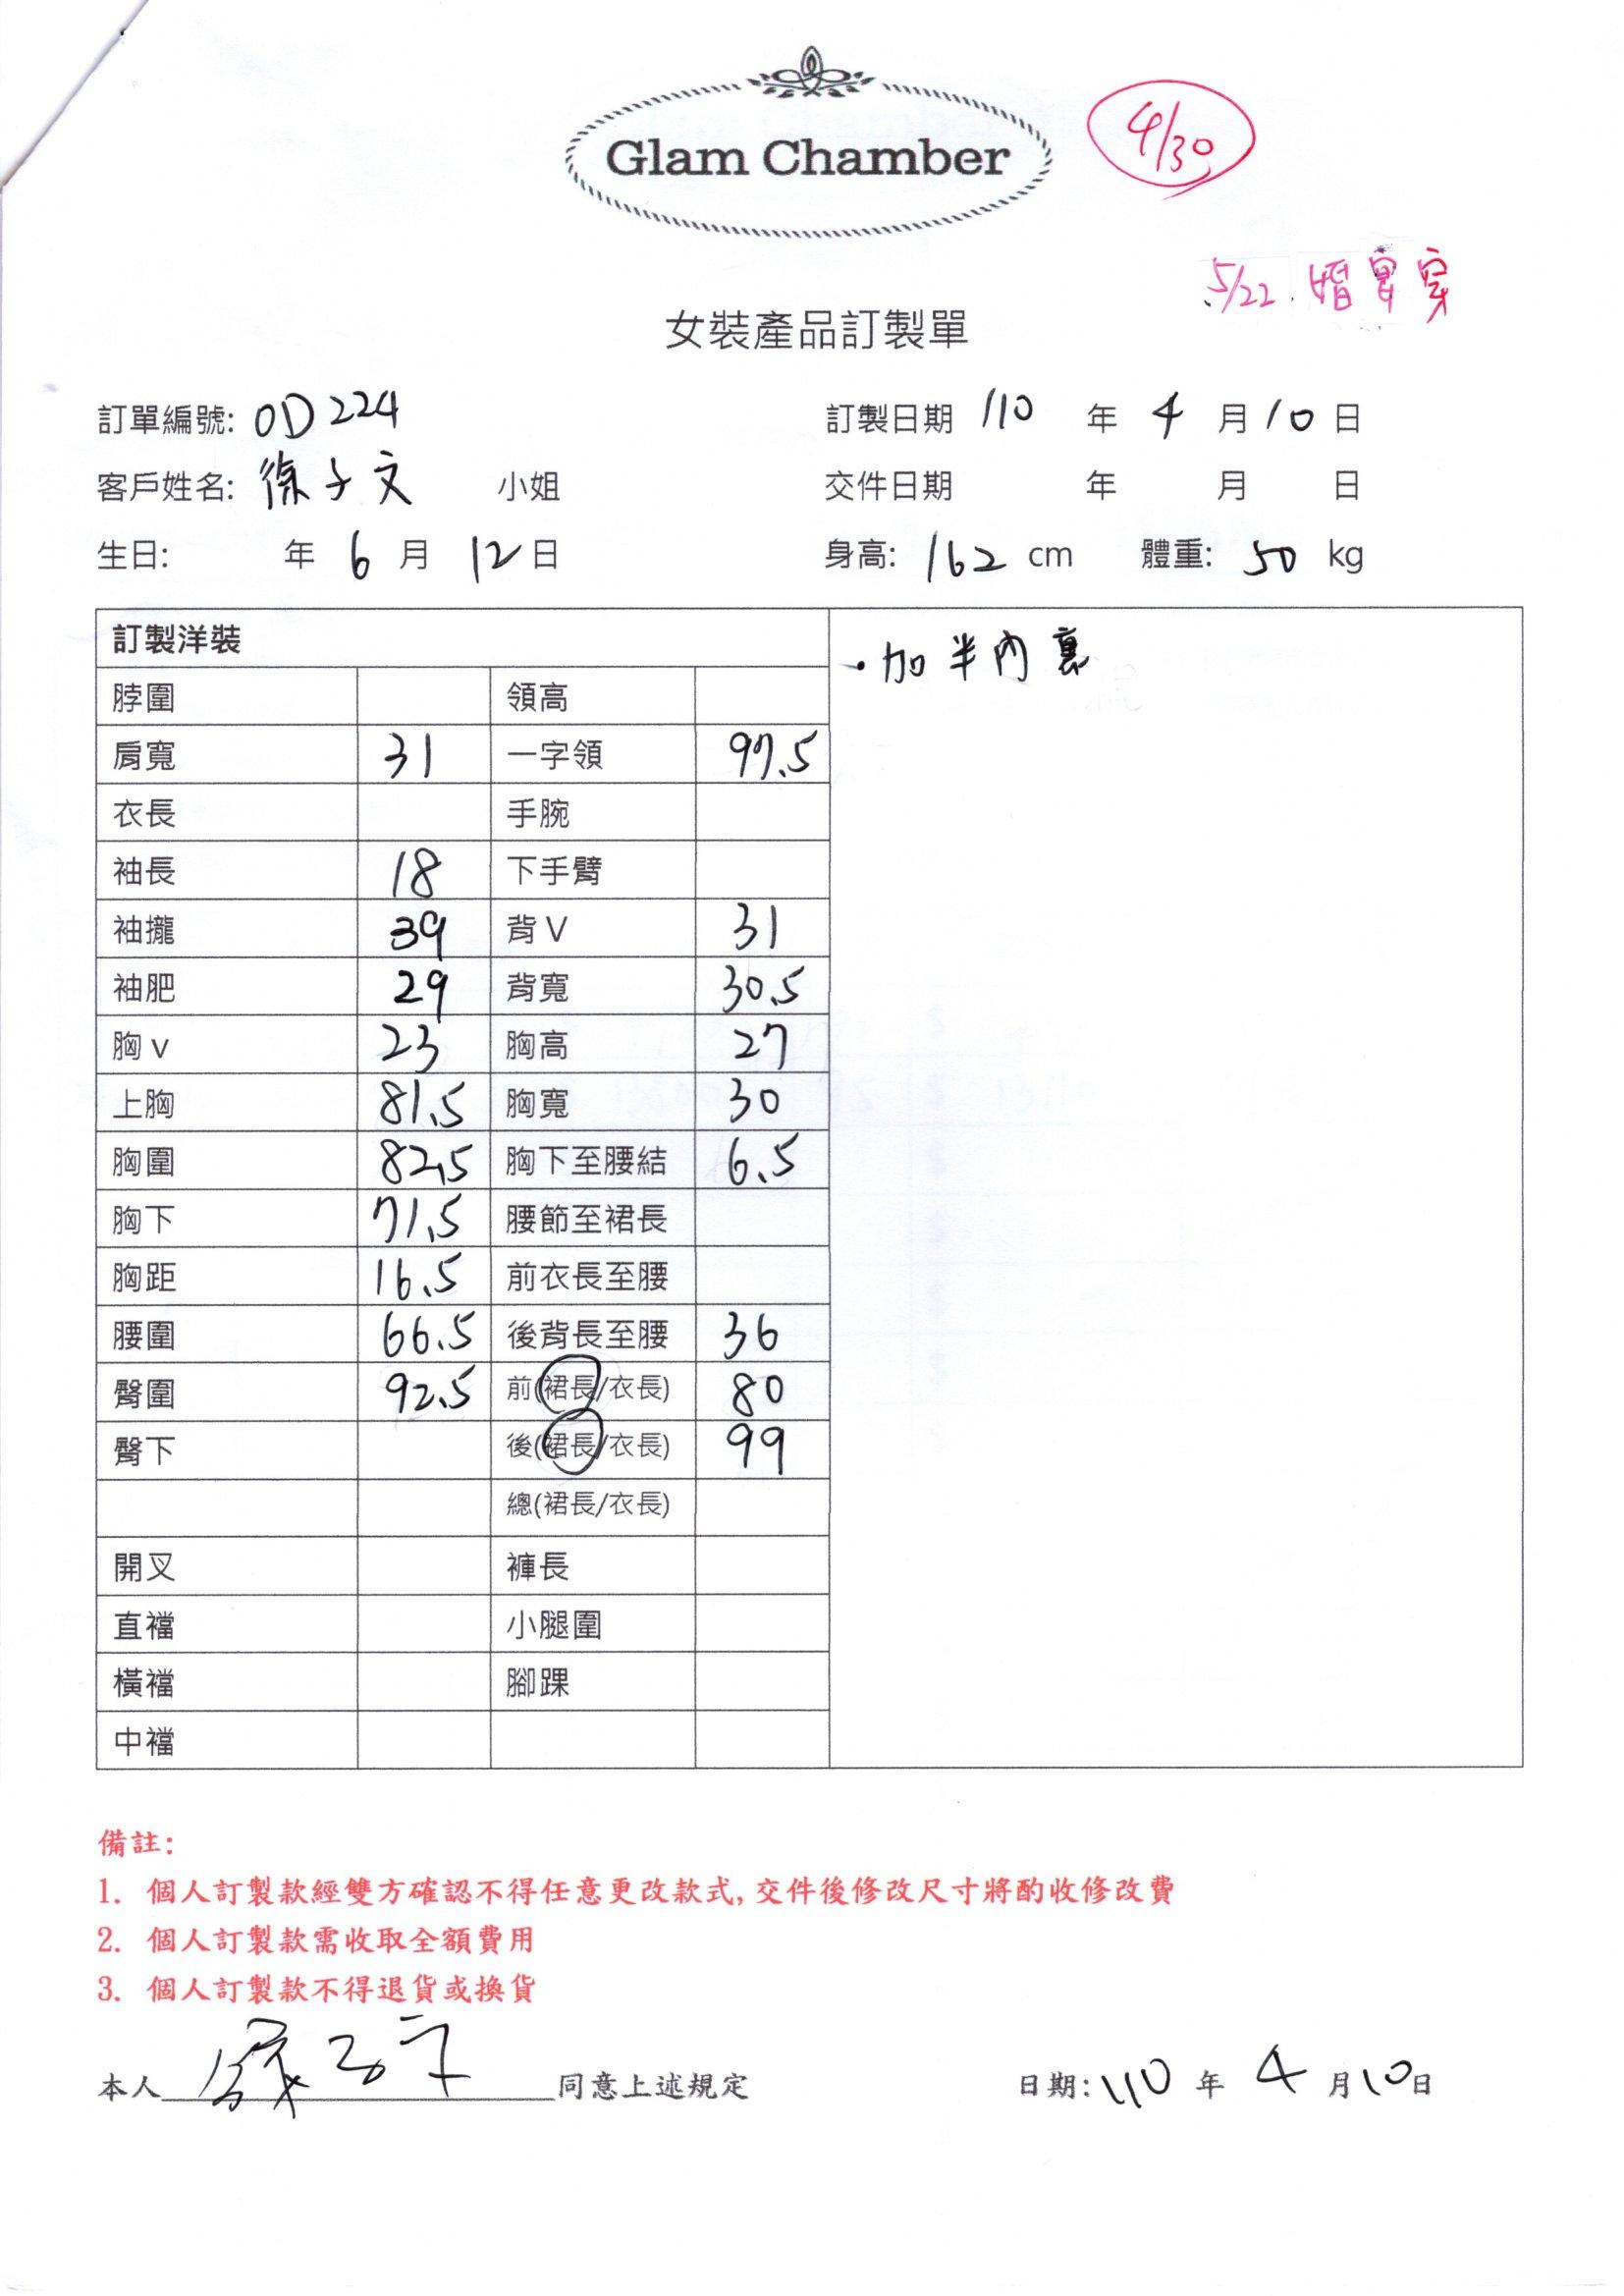 Glam Chamber
4/30
5/22 婚宴穿
女裝產品訂製單
訂單編號: OD224 訂製日期 110 年 4 月 10 日
客戶姓名: 徐子文 小姐 交件日期 年 月 日
生日: 年 6 月 12 日 身高: 162 cm 體重: 50 kg
訂製洋裝
・加半內裏
脖圍 領高
肩寬 31 一字領 97.5
衣長 手腕
袖長 18 下手臂
袖攏 39 背V 31
袖肥 29 背寬 30.5
胸v 23 胸高 27
上胸 81.5 胸寬 30
胸圍 82.5 胸下至腰結 6.5
胸下 71.5 腰節至裙長
胸距 16.5 前衣長至腰
腰圍 66.5 後背長至腰 36
臀圍 92.5 前(裙長/衣長) 80
臀下 後(裙長/衣長) 99
總(裙長/衣長)
開叉 褲長
直襠 小腿圍
橫襠 腳踝
中襠
備註:
1. 個人訂製款經雙方確認不得任意更改款式,交件後修改尺寸將酌收修改費
2. 個人訂製款需收取全額費用
3. 個人訂製款不得退貨或換貨
本人 徐子文 同意上述規定 日期: 110 年 4 月 10 日